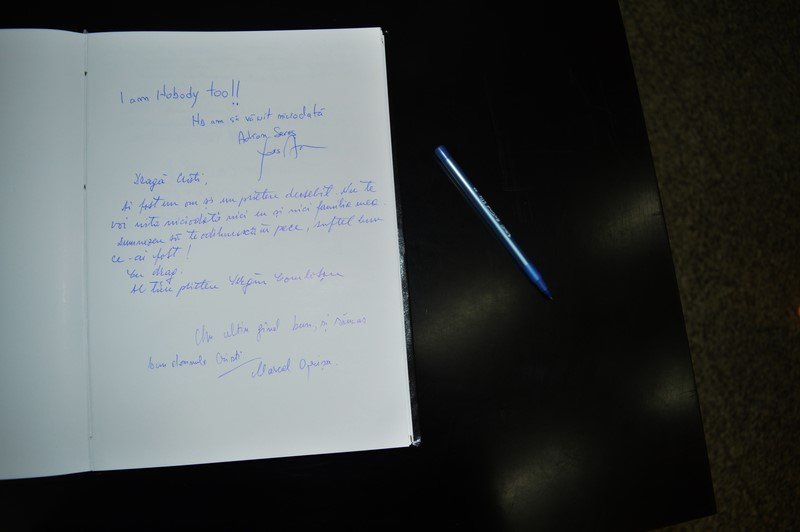 I am Nobody too!!
Adrian
Dragă Cristi,
Ai fost un om și un prieten deosebit. Nu te
voi uita niciodată nici eu și nici familia mea.
Dumnezeu să te odihnească în pace, suflet bun
ce-ai fost!
Cu drag,
Al tău prieten
Un ultim gând bun, și rămas
bun domnule Cristi
Marcel